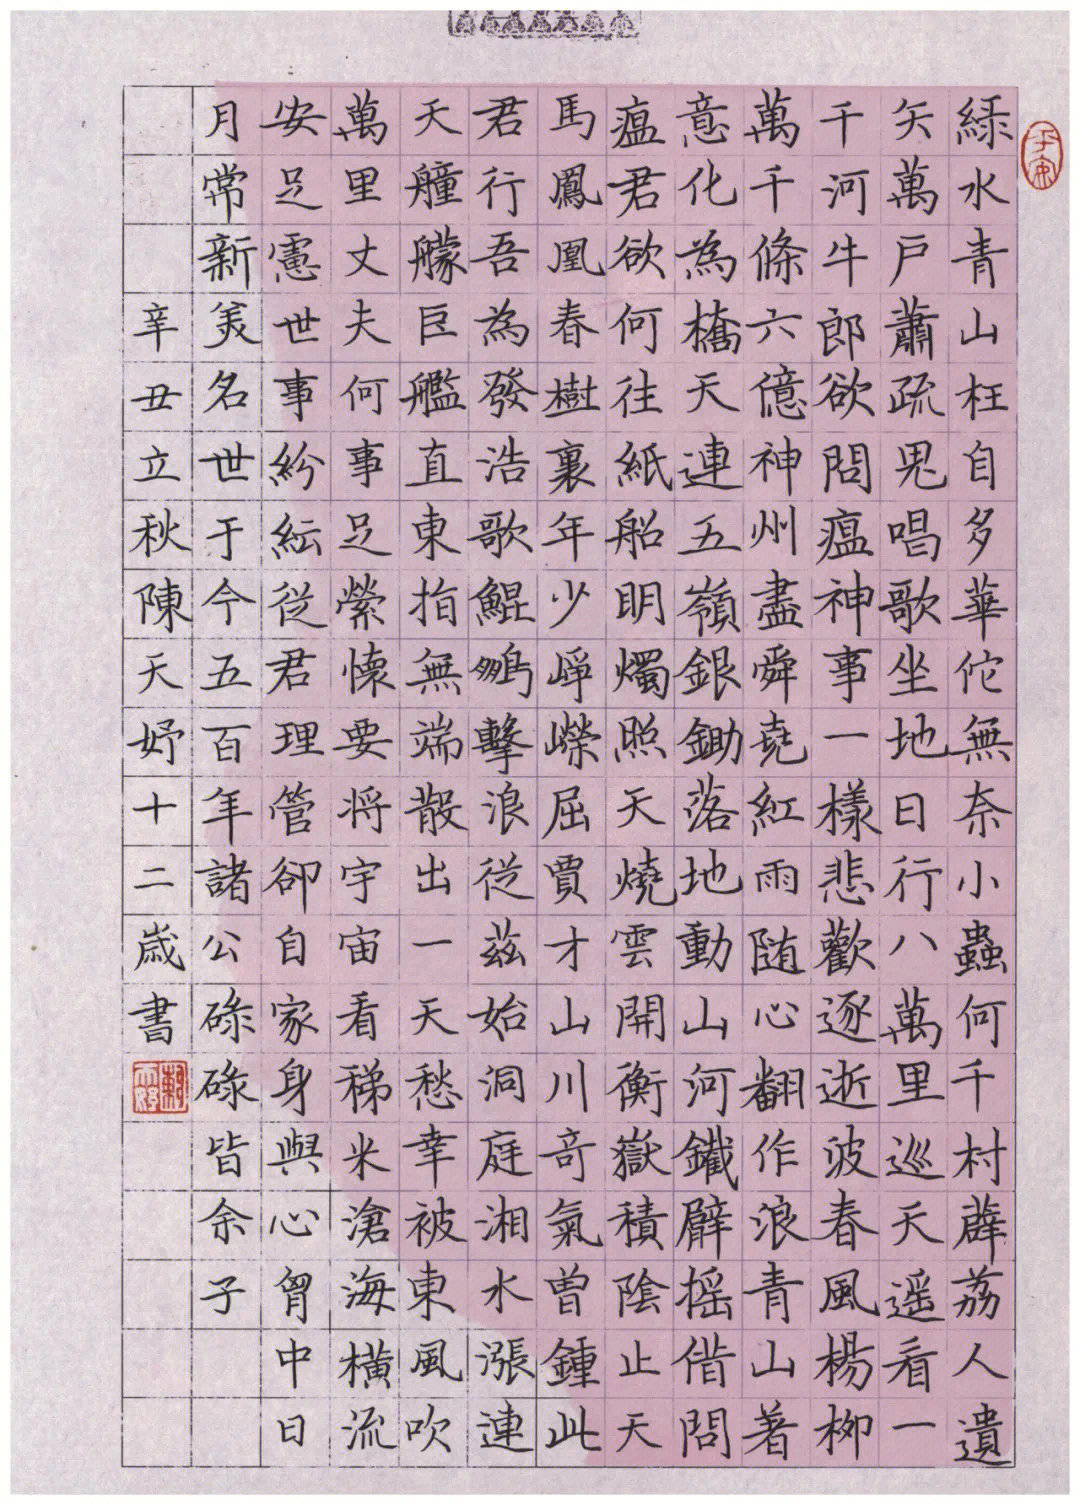 綠水青山枉自多華佗無奈小蟲何千村薜荔人遺
矢萬戶蕭疏鬼唱歌坐地日行八萬里巡天遥看一
千河牛郎欲問瘟神事一樣悲歡逐逝波春風楊柳
萬千條六億神州盡舜堯紅雨随心翻作浪青山著
意化為橋天連五嶺銀鋤落地動山河鐵臂摇借問
瘟君欲何往紙船明燭照天燒雲開衡嶽積陰止天
馬鳳凰春樹裏年少崢嶸屈賈才山川奇氣曾鍾此
君行吾為發浩歌鯤鵬擊浪從茲始洞庭湘水漲連
天艟艨巨艦直東指無端散出一天愁幸被東風吹
萬里丈夫何事足縈懷要将宇宙看稊米滄海橫流
安足慮世事紛紜從君理管卻自家身與心胷中日
月常新美名世于今五百年諸公碌碌皆余子
辛丑立秋陳天妤十二歲書